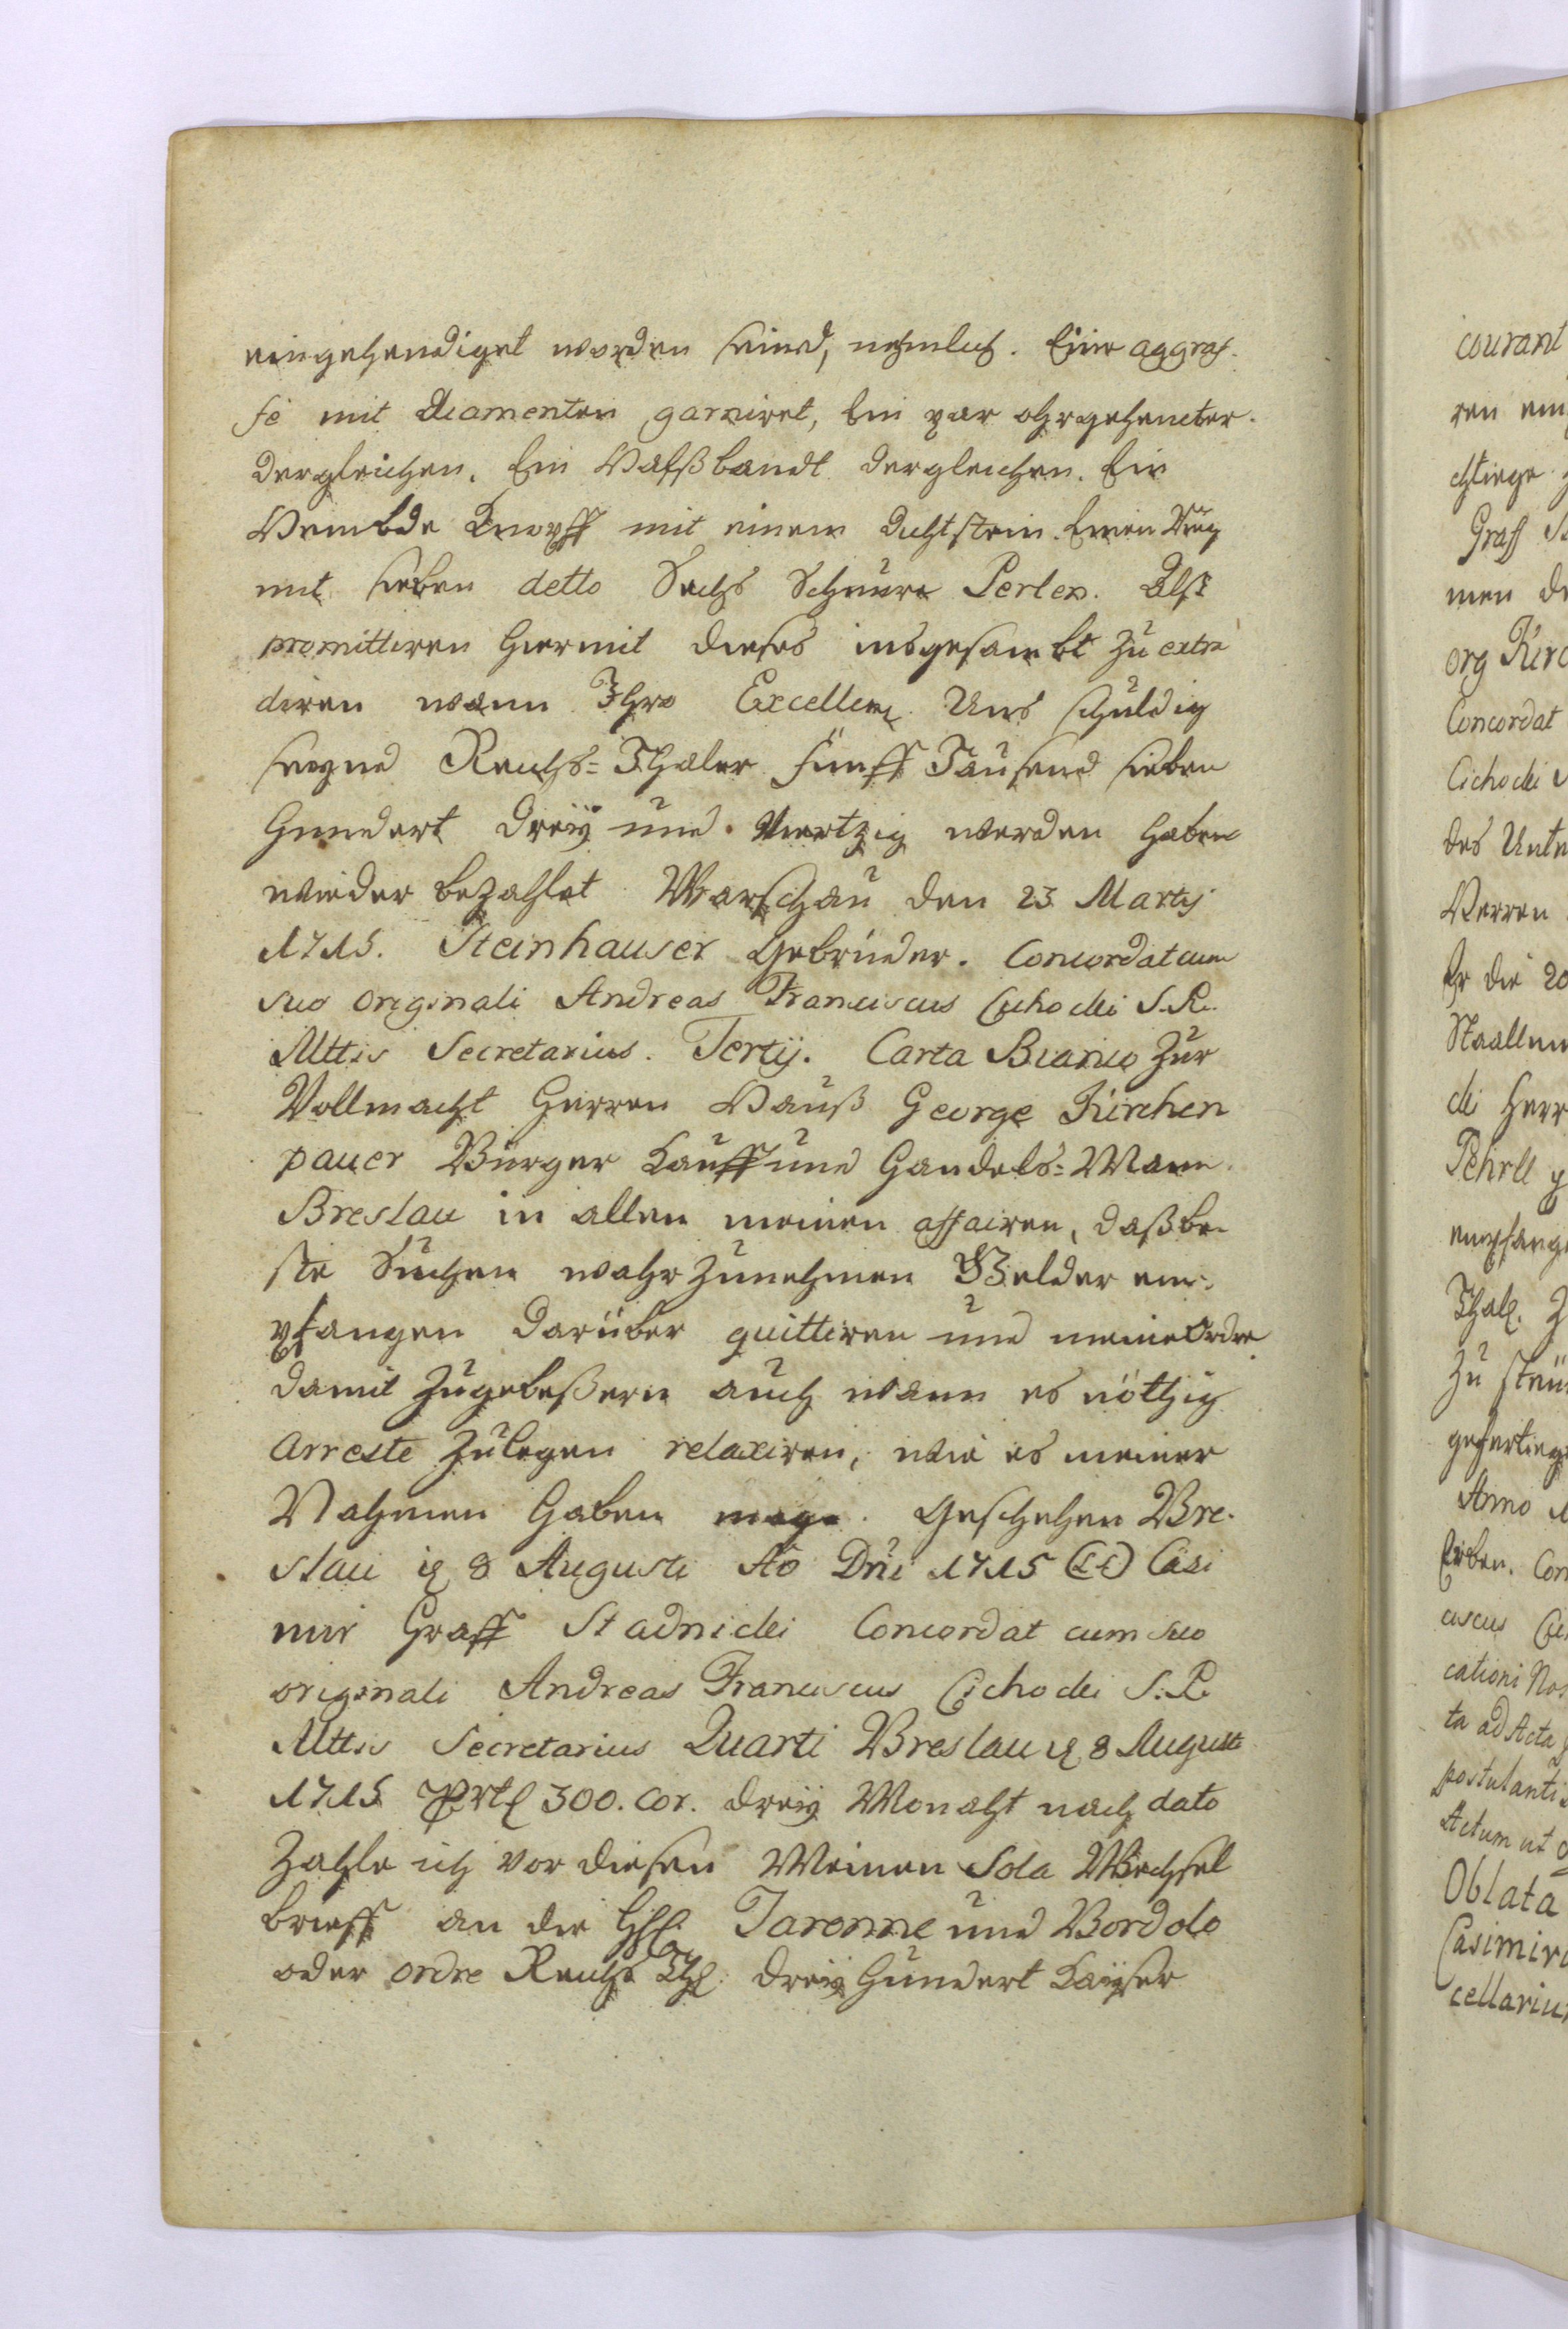 eingehendiget worden seind, nehmlich. Eine aggraf-
fe mit diamenten garniret, Ein par ohrgehencter.
dergleichen. Ein Halßbandt dergleichen. Ein
Knopff mit einem dichtstein. Einen Ring
mit sieben detto Sechs Schnüre Perlen. Alß
promittiren hiermit dieses insgesambt zu extra
diren wann Ihro Excellenz Uns schuldig
seyne Reichs=Thaler fünff Tausend sieben
Hundert dreÿ und Viertzig werden haben
wieder bezahlet Warschau den 23 Martij
1715. Steinhauser Gebrüder. Concordat cum
suo originali Andreas Franciscus Cichocki S. R.
Mttis Secretarius. Tertij. Carta Bianco Zur
Vollmacht Herren Hanß George Kirchen
pauer Bürger Kauff und Handels=Mann
Breslau in allen meinen affairen, daß be-
ste Suchen wahr zunehmen Gelder em-
pfangen darüber quittiren und meine Ordre
damit zugebeßern auch wann es nöthig
arreste zulegen relaxiren, wie es meiner
Nahmen haben mage. Geschehen Bre-
slau d 8 Augusti Ao Dni 1715 (LS) Casi
mir Graff Stadnicki Concordat cum suo
originali Andreas Franciscus Cichocki S. R.
Mttis Secretarius Quarti Breslau d 8 Augusti
1715 Rtl 300. Cor. dreÿ Monaht nach dato
Zahle ich vor diesen Meinen Sola Wechsel
brieff an die HH. Taronne und Bordolo
oder ordre Reichs Thl. dreÿ Hundert Kaÿser
courant
ren ein
Graff
men
org Kirc
Concordat
Cichocki
des Unte
Herren
Er die 20
Staallm
cki Herr
empfang
Thal. Z
zu
gefertieg
Anno
Erben. Con
ciscus Cic
cationi Nos
ta ad Acta
postulanti
Actum ut
Oblata
Casimir
cellariu